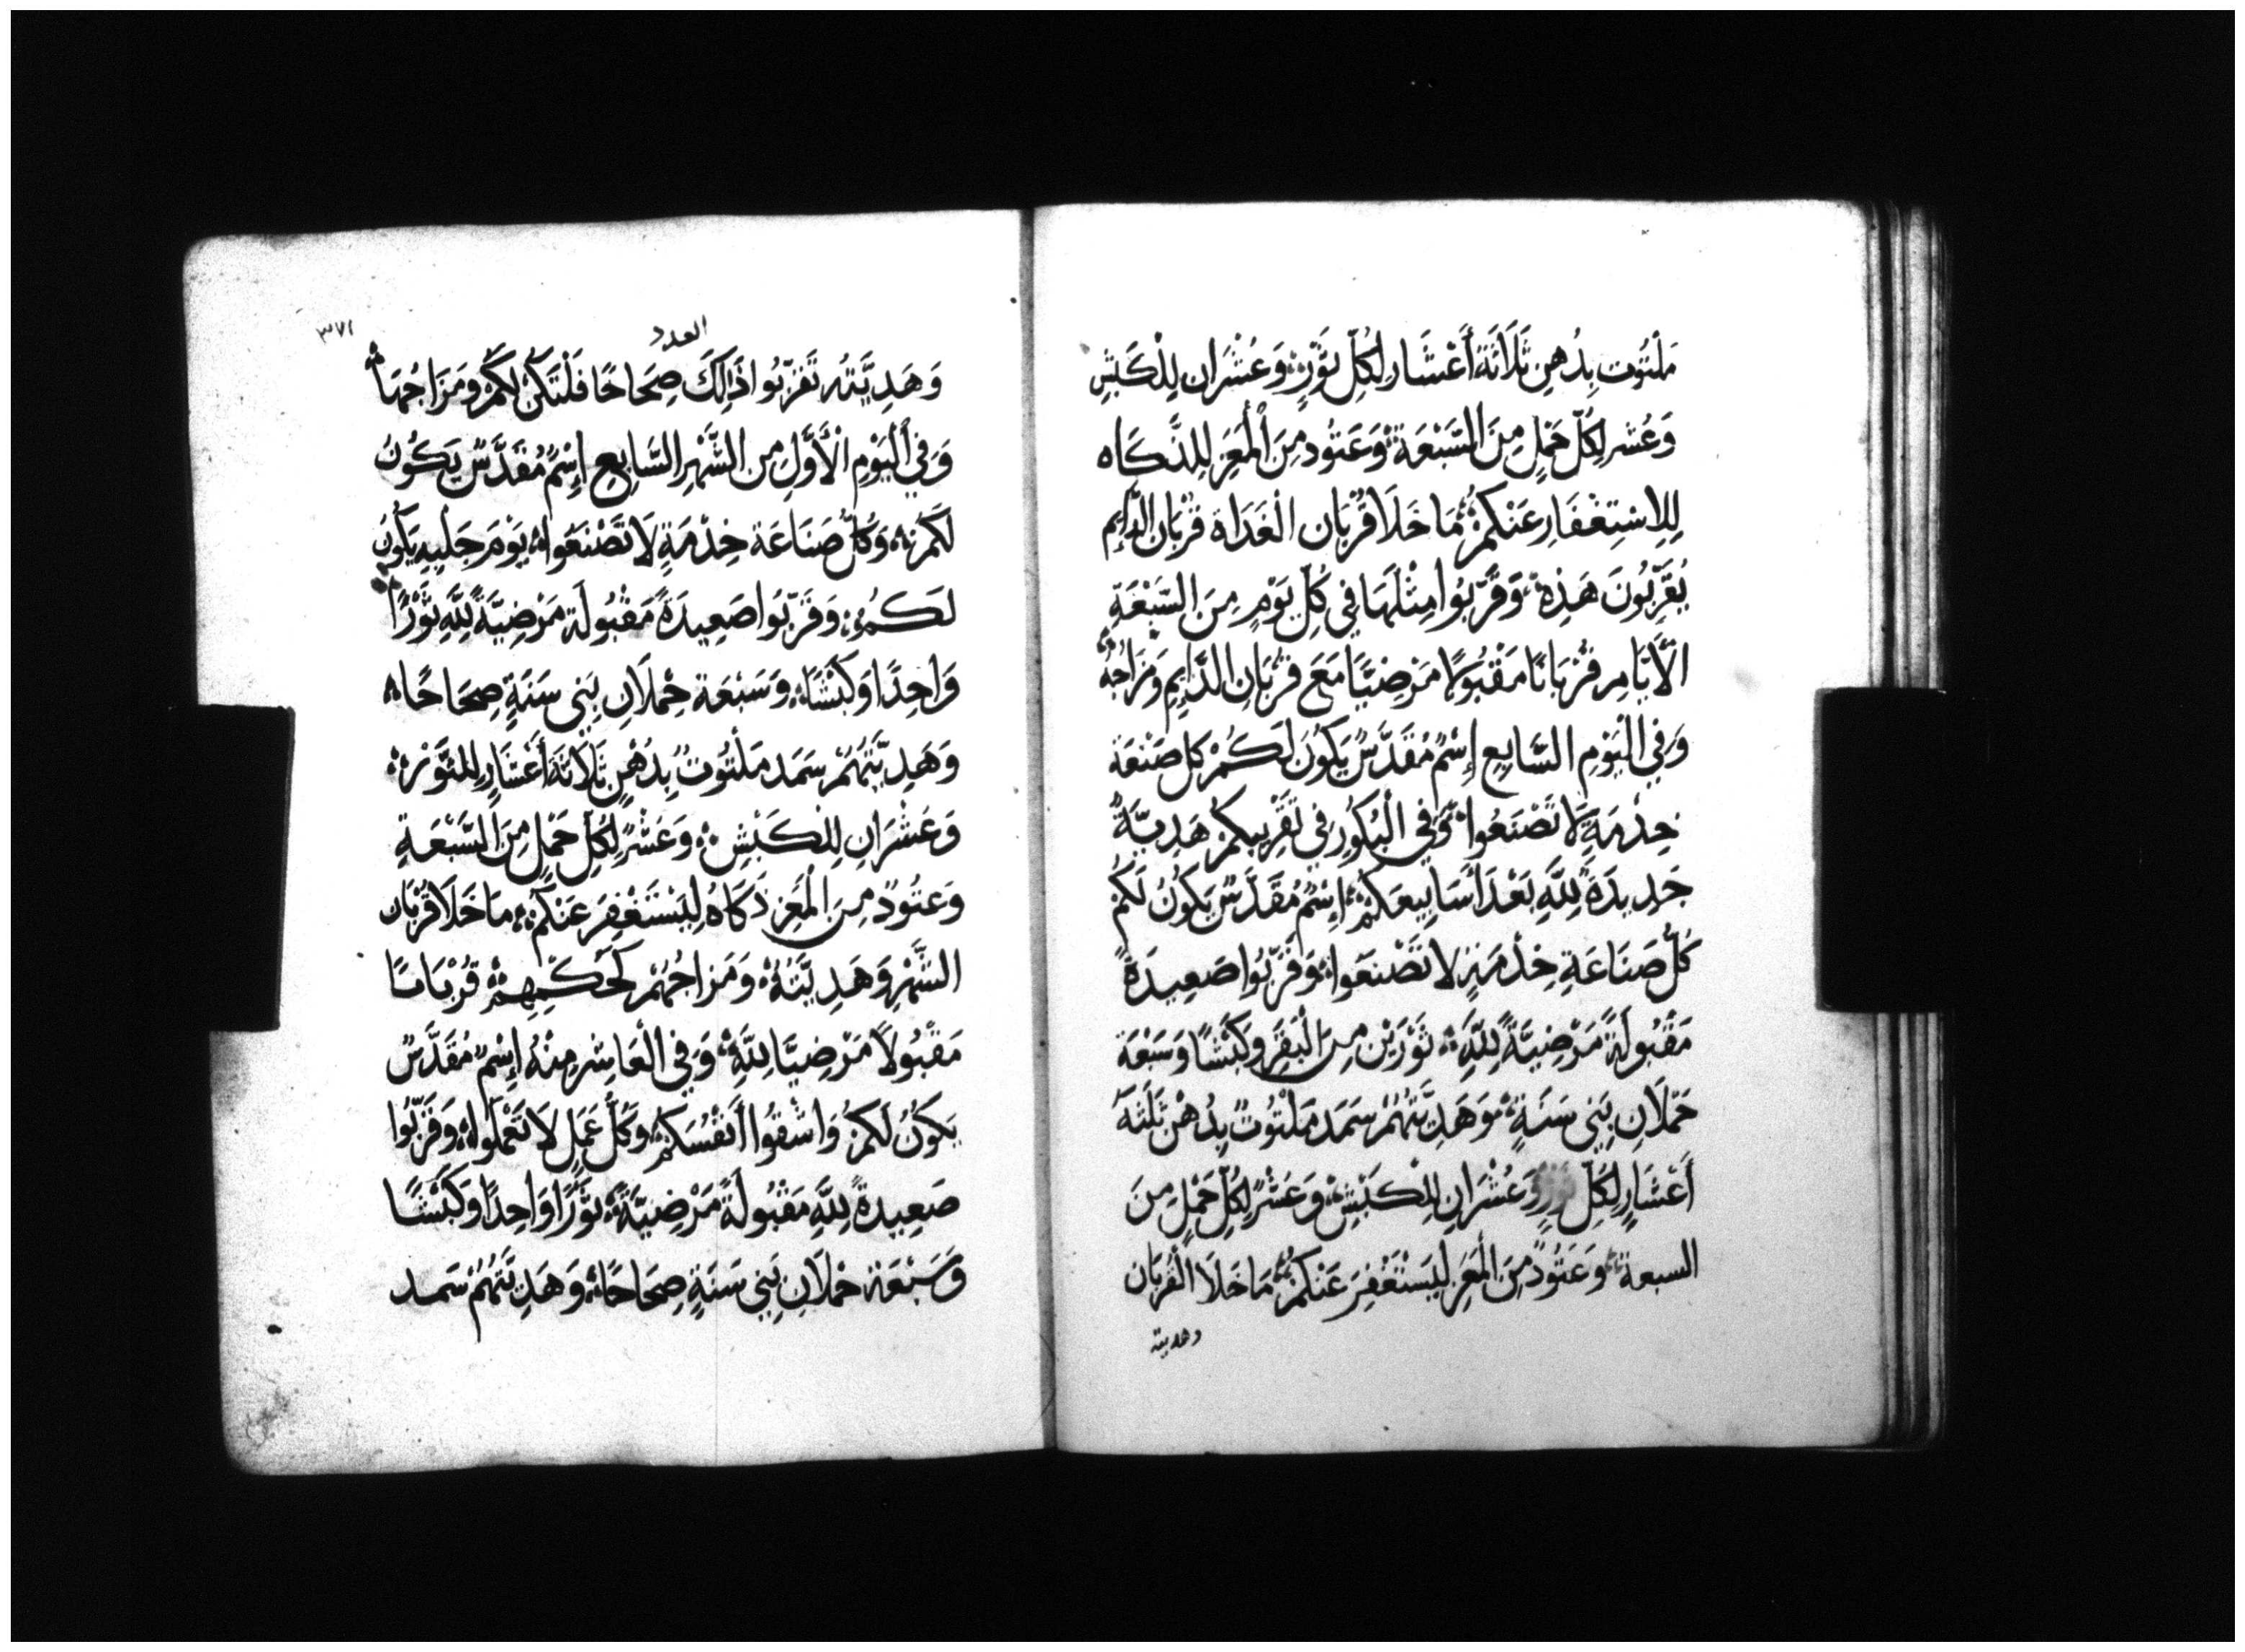 مَلْتُوت بِدُهنٍ ثَلَاثَةُ أَعْشَار لِكُلّ ثَوْرٍ وَعُشْرَان لِلْكَبْشِ
وَعُشر لِكُلّ حَمْلٍ مِنَ السَّبْعَةِ وَعَتُود مِنَ الْمَعِز لِلذَّكَاه
لِلِاسْتِغْفَارِ عَنْكُمْ مَا خَلَا قُرْبَان الْغَدَاة قُرْبَان الدَّايِم
يُقَرِّبُونَ هَذِهِ وَقَرِّبُوا مِثْلَهَا فِي كُلِّ يَوْمٍ مِنَ السَّبْعَةِ
الْأَيَّامِ قُرْبَانًا مَقْبُولًا مَرْضِيًّا مَعَ قُرْبَانِ الدَّايِمِ وَمَزَاجُهُ
وَفِي الْيَوْمِ السَّابِعِ إِسْمٌ مُقَدَّسٌ يَكُونُ لَكُمْ كل صَنْعَة
خِدْمَةٍ لَا تَصْنَعُوا وَفِي الْبُكُورِ فِي تَقْرِيبِكُمْ هَدِيَّةً
جَدِيدَةً لِلَّهِ بَعْدَ أَسَابِيعَكُمْ إِسْمٌ مُقَدَّسٌ يَكُونُ لَكُمْ
كُلُّ صَنَاعَةِ خِدْمَةٍ لا تَصْنَعُوا وَقَرِّبُوا صَعِيدَةً
مَقْبُولَةً مَرْضِيَّةً لِلَّهِ ثَوْرَيْنِ مِنَ الْبَقَرِ وَكَبْشًا وَسَبْعَة
حَمْلَانِ بَنِي سَنَةٍ وَهَدِيَّتُهُمْ سَمَد مَلْتُوتٌ بِدُهْن ثَلَثَة
أَعْشَارٍ لِكُلِّ ثَوْرٍ وَعُشْرَانِ لِلْكَبْشِ وَعُشْرٌ لِكُلِّ حَمْلٍ مِنَ
السبعة وَعَتُودٌ مِنَ الْمَعِزِ لِيَسْتَغْفِرَ عَنْكُمْ مَا خَلَا الْقُرْبَان
وهديته
العدد
٣٧١
وَهَدِيَّتُه تَقَرّبُوا ذَالِكَ صِحَاحًا فَلْتَكُنْ لَكُمْ وَمَزَاجُهَا
وَفِي الْيَوْمِ الْأَوَّلِ مِن الشَّهْرِ السَّابِعِ إِسْمٌ مُقَدَّسٌ يَكُونُ
لَكُمْ وَكُلُّ صَنَاعَة خِدْمَةٍ لَا تَصْنَعُوا يَوْمَ جَلْبِيه يَكُونُ
لَكُمْ وَقَرِّبُوا صَعِيدَةً مَقْبُولَة مَرْضِيَّةً لِلَّهِ ثَوْرًا
وَاحِدًا وَكَبْشًا وَسَبْعَة حُمْلَانِ بَنِي سَنَةٍ صِحَاحًا
وَهَدِيَّتُهُمْ سَمَد مَلْتُوتٌ بِدُهْنٍ ثَلَاثَةُ أَعْشَارٍ لِلثَّوْرِ
وَعُشْرَانِ لِلْكَبْشِ وَعُشْرٌ لِكُلِّ حَمْلٍ مِنَ السَّبْعَةِ
وَعَتُودٌ مِنَ الْمَعِزِ ذَكَاهُ لِيَسْتَغْفِرَ عَنْكُمْ مَا خَلَا قُرْبَان
الشَّهْرِ وَهَدِيَّتُهُ وَمَزَاجُهُمْ كَحُكْمِهِمْ قُرْبَانًا
مَقْبُولًا مَرْضِيًّا لِلَّهِ وَفِي الْعَاشِر مِنْهُ إِسْمٌ مُقَدَّسٌ
يَكُونُ لَكُمْ وَاشْقُوا أَنْفُسَكُمْ وَكُلُّ عَمَلٍ لَا تَعْمَلُوا وَقَرِّبُوا
صَعِيدَةً لِلَّهِ مَقْبُولَةً مَرْضِيَّةً ثَوْرًا وَاحِدًا وَكَبْشًا
وَسَبْعَة حُمْلَانِ بَنِي سَنَةٍ صِحَاحًا وَهَدِيَّتُهُمْ سَمـد